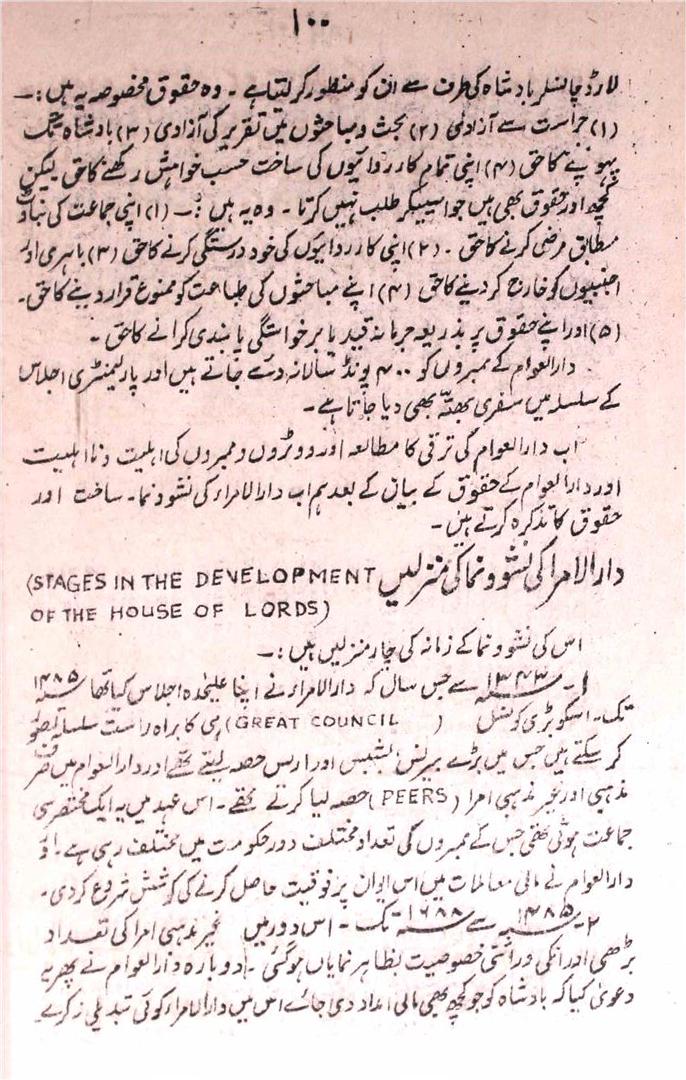 ۱۰۰
لارڈ چانسلر بادشاہ کی طرف سے ان کو منظور کر لیتا ہے ۔ وہ حقوق مخصوصہ یہ ہیں :۔
(۱) حراست سے آزادی (۲) بحث و مباحثوں میں تقریر کی آزادی (۳) بادشاہ تک
پہونچنے کا حق (۴) اپنی تمام کارروائیوں کی ساخت حسب خواہش رکھنے کا حق لیکن
کچھ اور حقوق بھی ہیں جو اسپیکر طلب نہیں کرتا ۔ وہ یہ ہیں :۔ (۱) اپنی جماعت کی بناوٹ
مطابق مرضی کرنے کا حق ۔ (۲) اپنی کارروائیوں کی خود درستگی کرنے کا حق (۳) باہری اور
اجنبیوں کو خارج کر دینے کا حق (۴) اپنے مباحثوں کی طباعت کو ممنوع قرار دینے کا حق ۔
(۵) اور اپنے حقوق پر بذریعہ جرمانہ قید یا برخواستگی پابندی کرانے کا حق ۔
دارالعوام کے ممبروں کو ۴۰۰ پونڈ سالانہ دئے جاتے ہیں اور پارلیمنٹری اجلاس
کے سلسلہ میں سفری بھتہ بھی دیا جاتا ہے ۔
اب دارالعوام کی ترقی کا مطالعہ اور ووٹروں و ممبروں کی اہلیت و نااہلیت
اور دارالعوام کے حقوق کے بیان کے بعد ہم اب دارالامراء کی نشو و نما ۔ ساخت اور
حقوق کا تذکرہ کرتے ہیں ۔
دارالامرا کی نشو و نما کی منزلیں (STAGES IN THE DEVELOPMENT
OF THE HOUSE OF LORDS)
اس کی نشو و نما کے زمانہ کی چار منزلیں ہیں :۔
۱۔ سنہ ۱۳۴۳ سے جس سال کہ دارالامراء نے اپنا علیحدہ اجلاس کیا تھا سنہ ۱۴۸۵
تک ۔ اسکو بڑی کونسل (GREAT COUNCIL) ہی کا براہ راست سلسلہ تصور
کر سکتے ہیں جس میں بڑے بیرنس بشپس اور ارلس حصہ لیتے تھے اور دارالعوام میں صرف
مذہبی اور غیر مذہبی امرا (PEERS) حصہ لیا کرتے تھے ۔ اس عہد میں یہ ایک مختصر سی
جماعت ہوتی تھی جس کے ممبروں کی تعداد مختلف دور حکومت میں مختلف رہی ہے ۔ اور
دارالعوام نے مالی معاملات میں اس ایوان پر فوقیت حاصل کرنے کی کوشش شروع کر دی ۔
۲۔ سنہ ۱۴۸۵ سے سنہ ۱۶۸۸ تک ۔ اس دور میں غیر مذہبی امرا کی تعداد
بڑھی اور انکی وراثتی خصوصیت بظاہر نمایاں ہو گئی ۔ دوبارہ دارالعوام نے پھر یہ
دعویٰ کیا کہ بادشاہ کو جو کچھ بھی مالی امداد دی جائے اس میں دارالامراء کوئی تبدیلی نہ کرے